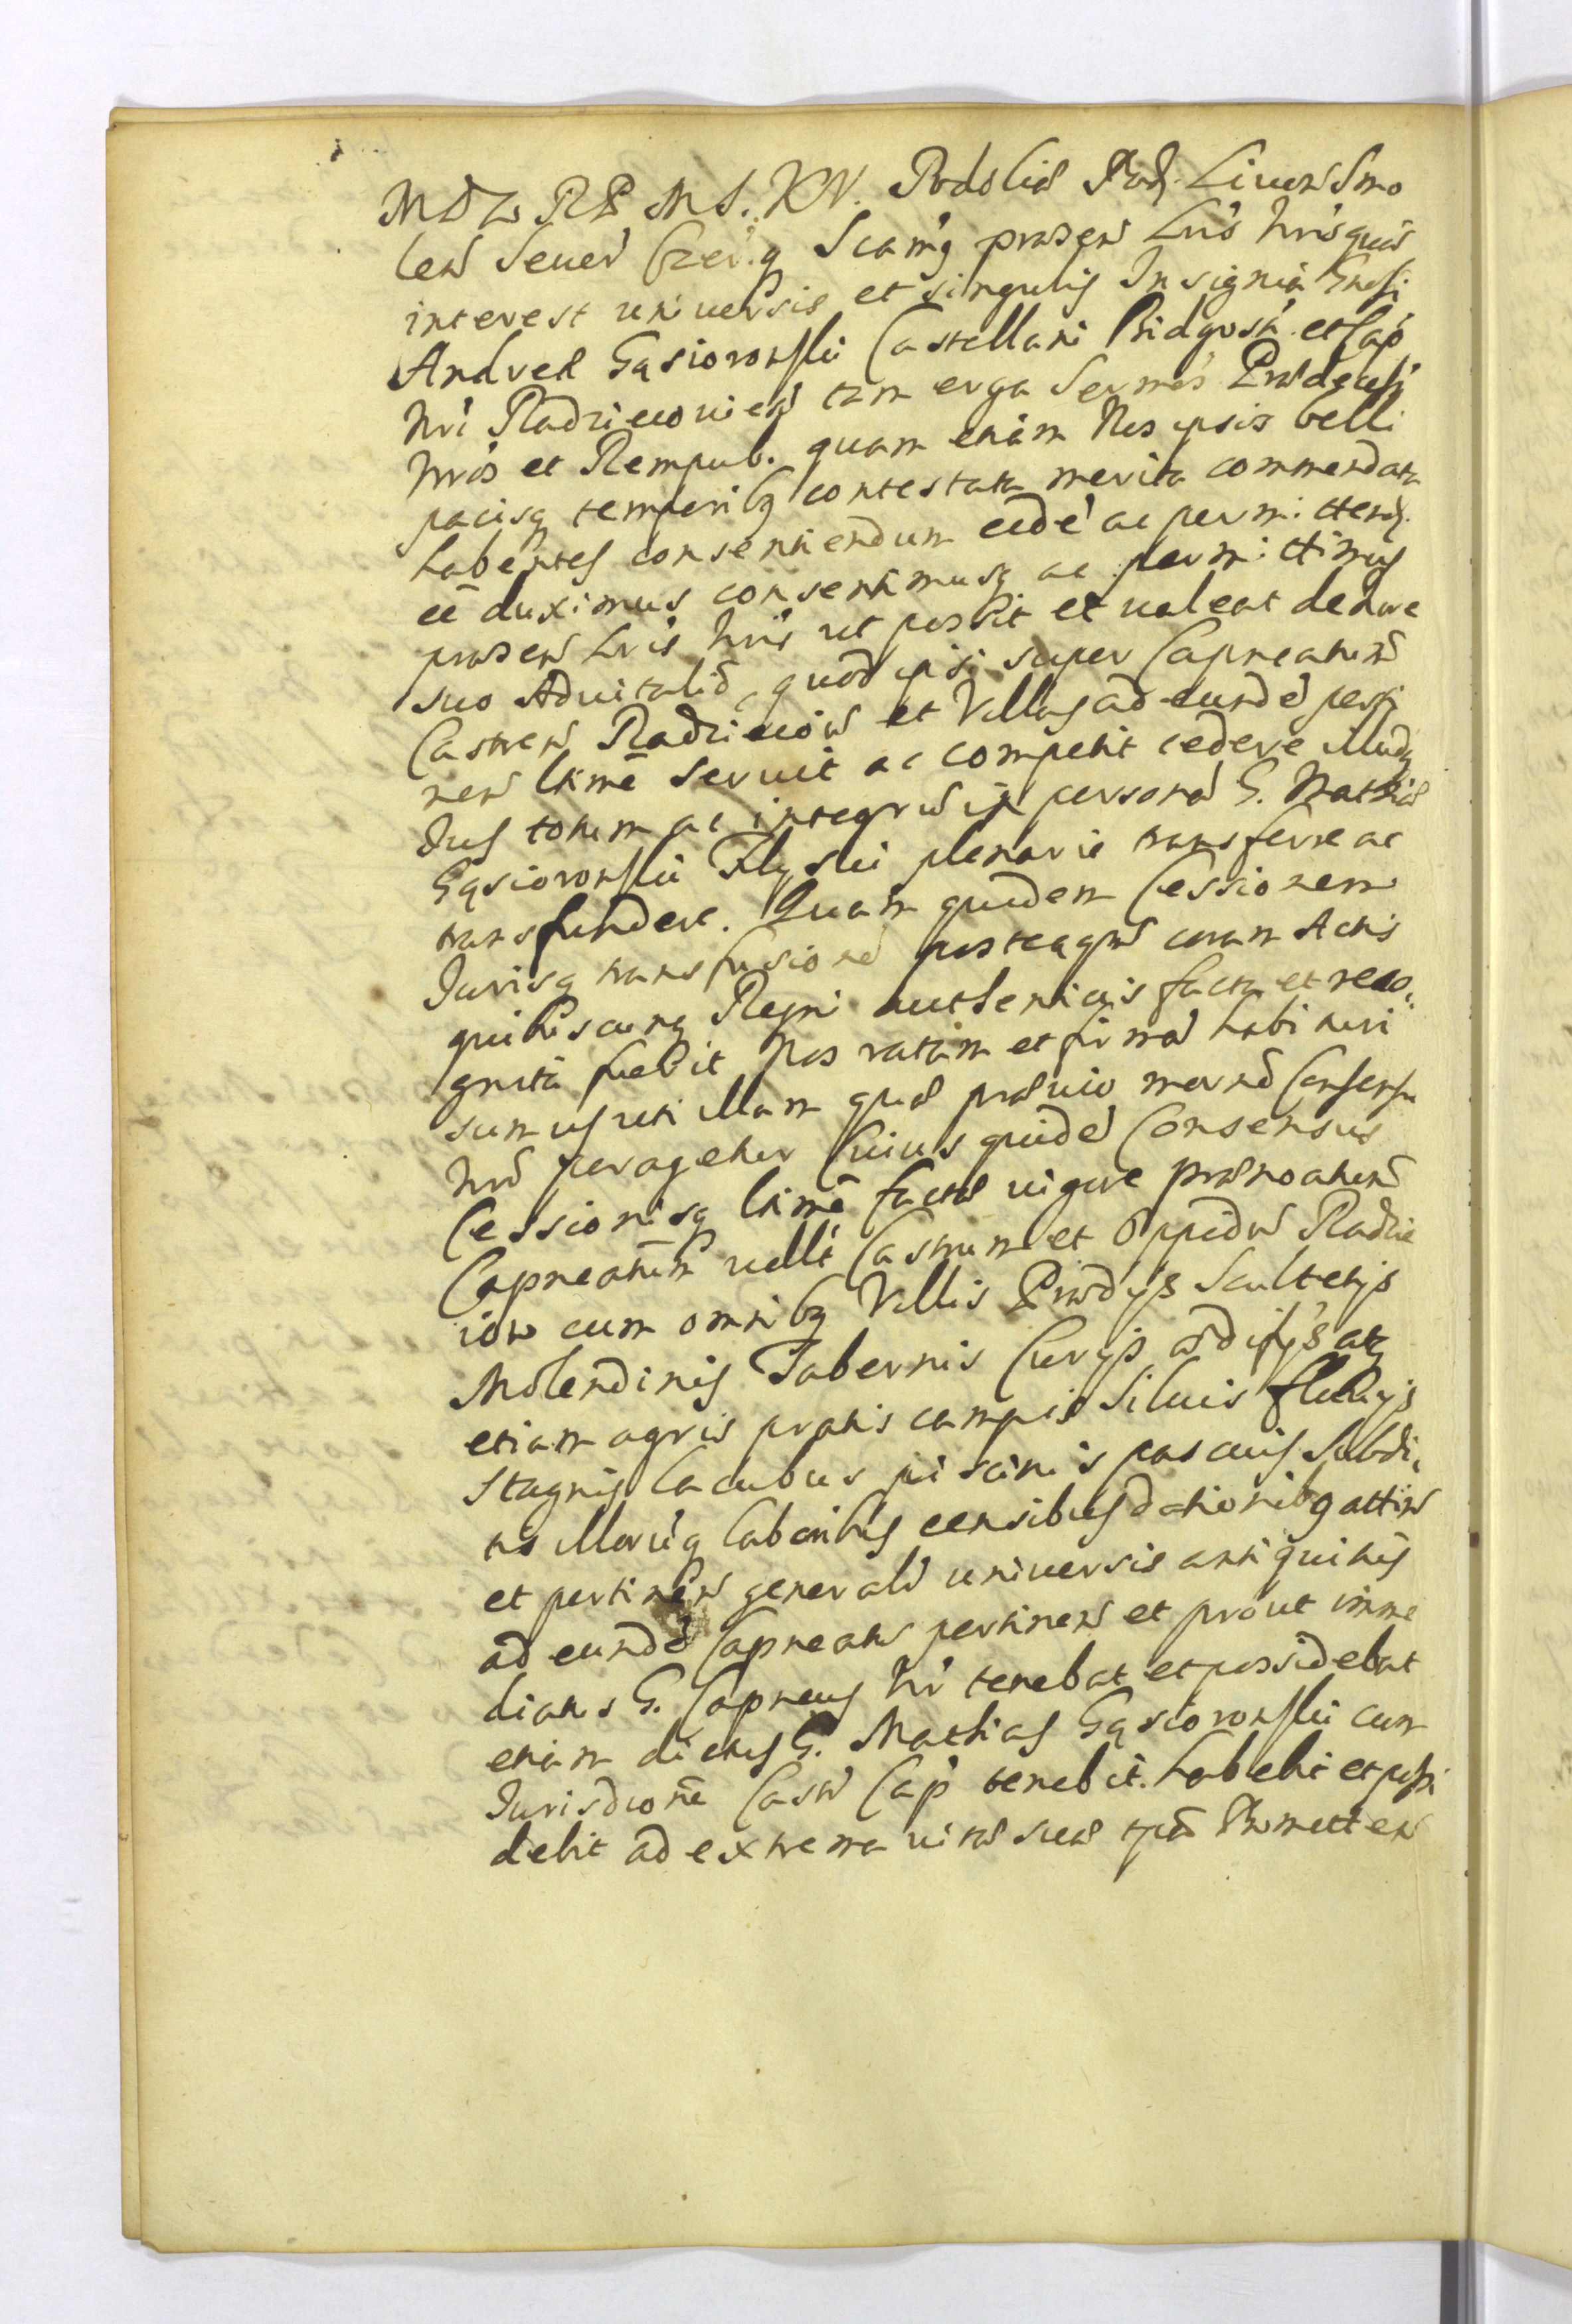 MDL RP MS. KV. Podoliæ Pod. Liuon Smo
len Seuer Czer.q Scam9 præsen Lris Nris quor
interest uniuersis et singulis Insignia Gnosi
Andreæ Gąsiorowski Castellani Bidgosn. et Cap
Nri Radzieiouien tam erga Sermos Prædecess
Nros et Rempub. quam etiam Nos ipsis belli
pacisq temporibq contestata merita commendata
habentes consentiendum eidē ac permittend.
eē duximus consentimusq ac permittimus
præsen Lris Nris ut possit et ualeat de Iure
suo Aduitalid, quod ipsi super Capneatum
Castren Radzieiow et Villas ad eundē perti
nen ltime seruit ac competit cedere Illudq
Ius totum ac integrū in personā G. Mathiæ
Gąsiorowski Fily sui plenarie transferre ac
transfundere. Quam quidem Cessionem
Iurisq transfusionē posteaqm coram Actis
quibuscunq Regni authenticis facta et reco,
gnita fuerit Nos ratam et firmā habituri
sumus uti illam quæ præuio mernd Consensu
Nro peragetur Cuius quidē Consensus
Cessionisq ltimē factæ uigore prænoatum
Capneatum uidelt Castrum et Oppidū Radzie
iow cum omnibq Villis Prædys Scultetys
Molendinis Tabernis Curys ædifys atq
etiam agris pratis campis Siluis fluuys
Stagnis lacubus piscinis pascuis Subdi,
tis Illorūq laboribus censibus dationibq attin
et pertinen generalr uniuersis antiquitus
ad eundē Capneatū pertinen et prout imme
diatus G. Capneus Nr tenebat et possidebat
etiam dictus G. Mathias Gąsiorowski cum
Iurisdione Castr Cap tenebit. habebit et possi
debit ad extrema uitæ suæ tpa Promitten